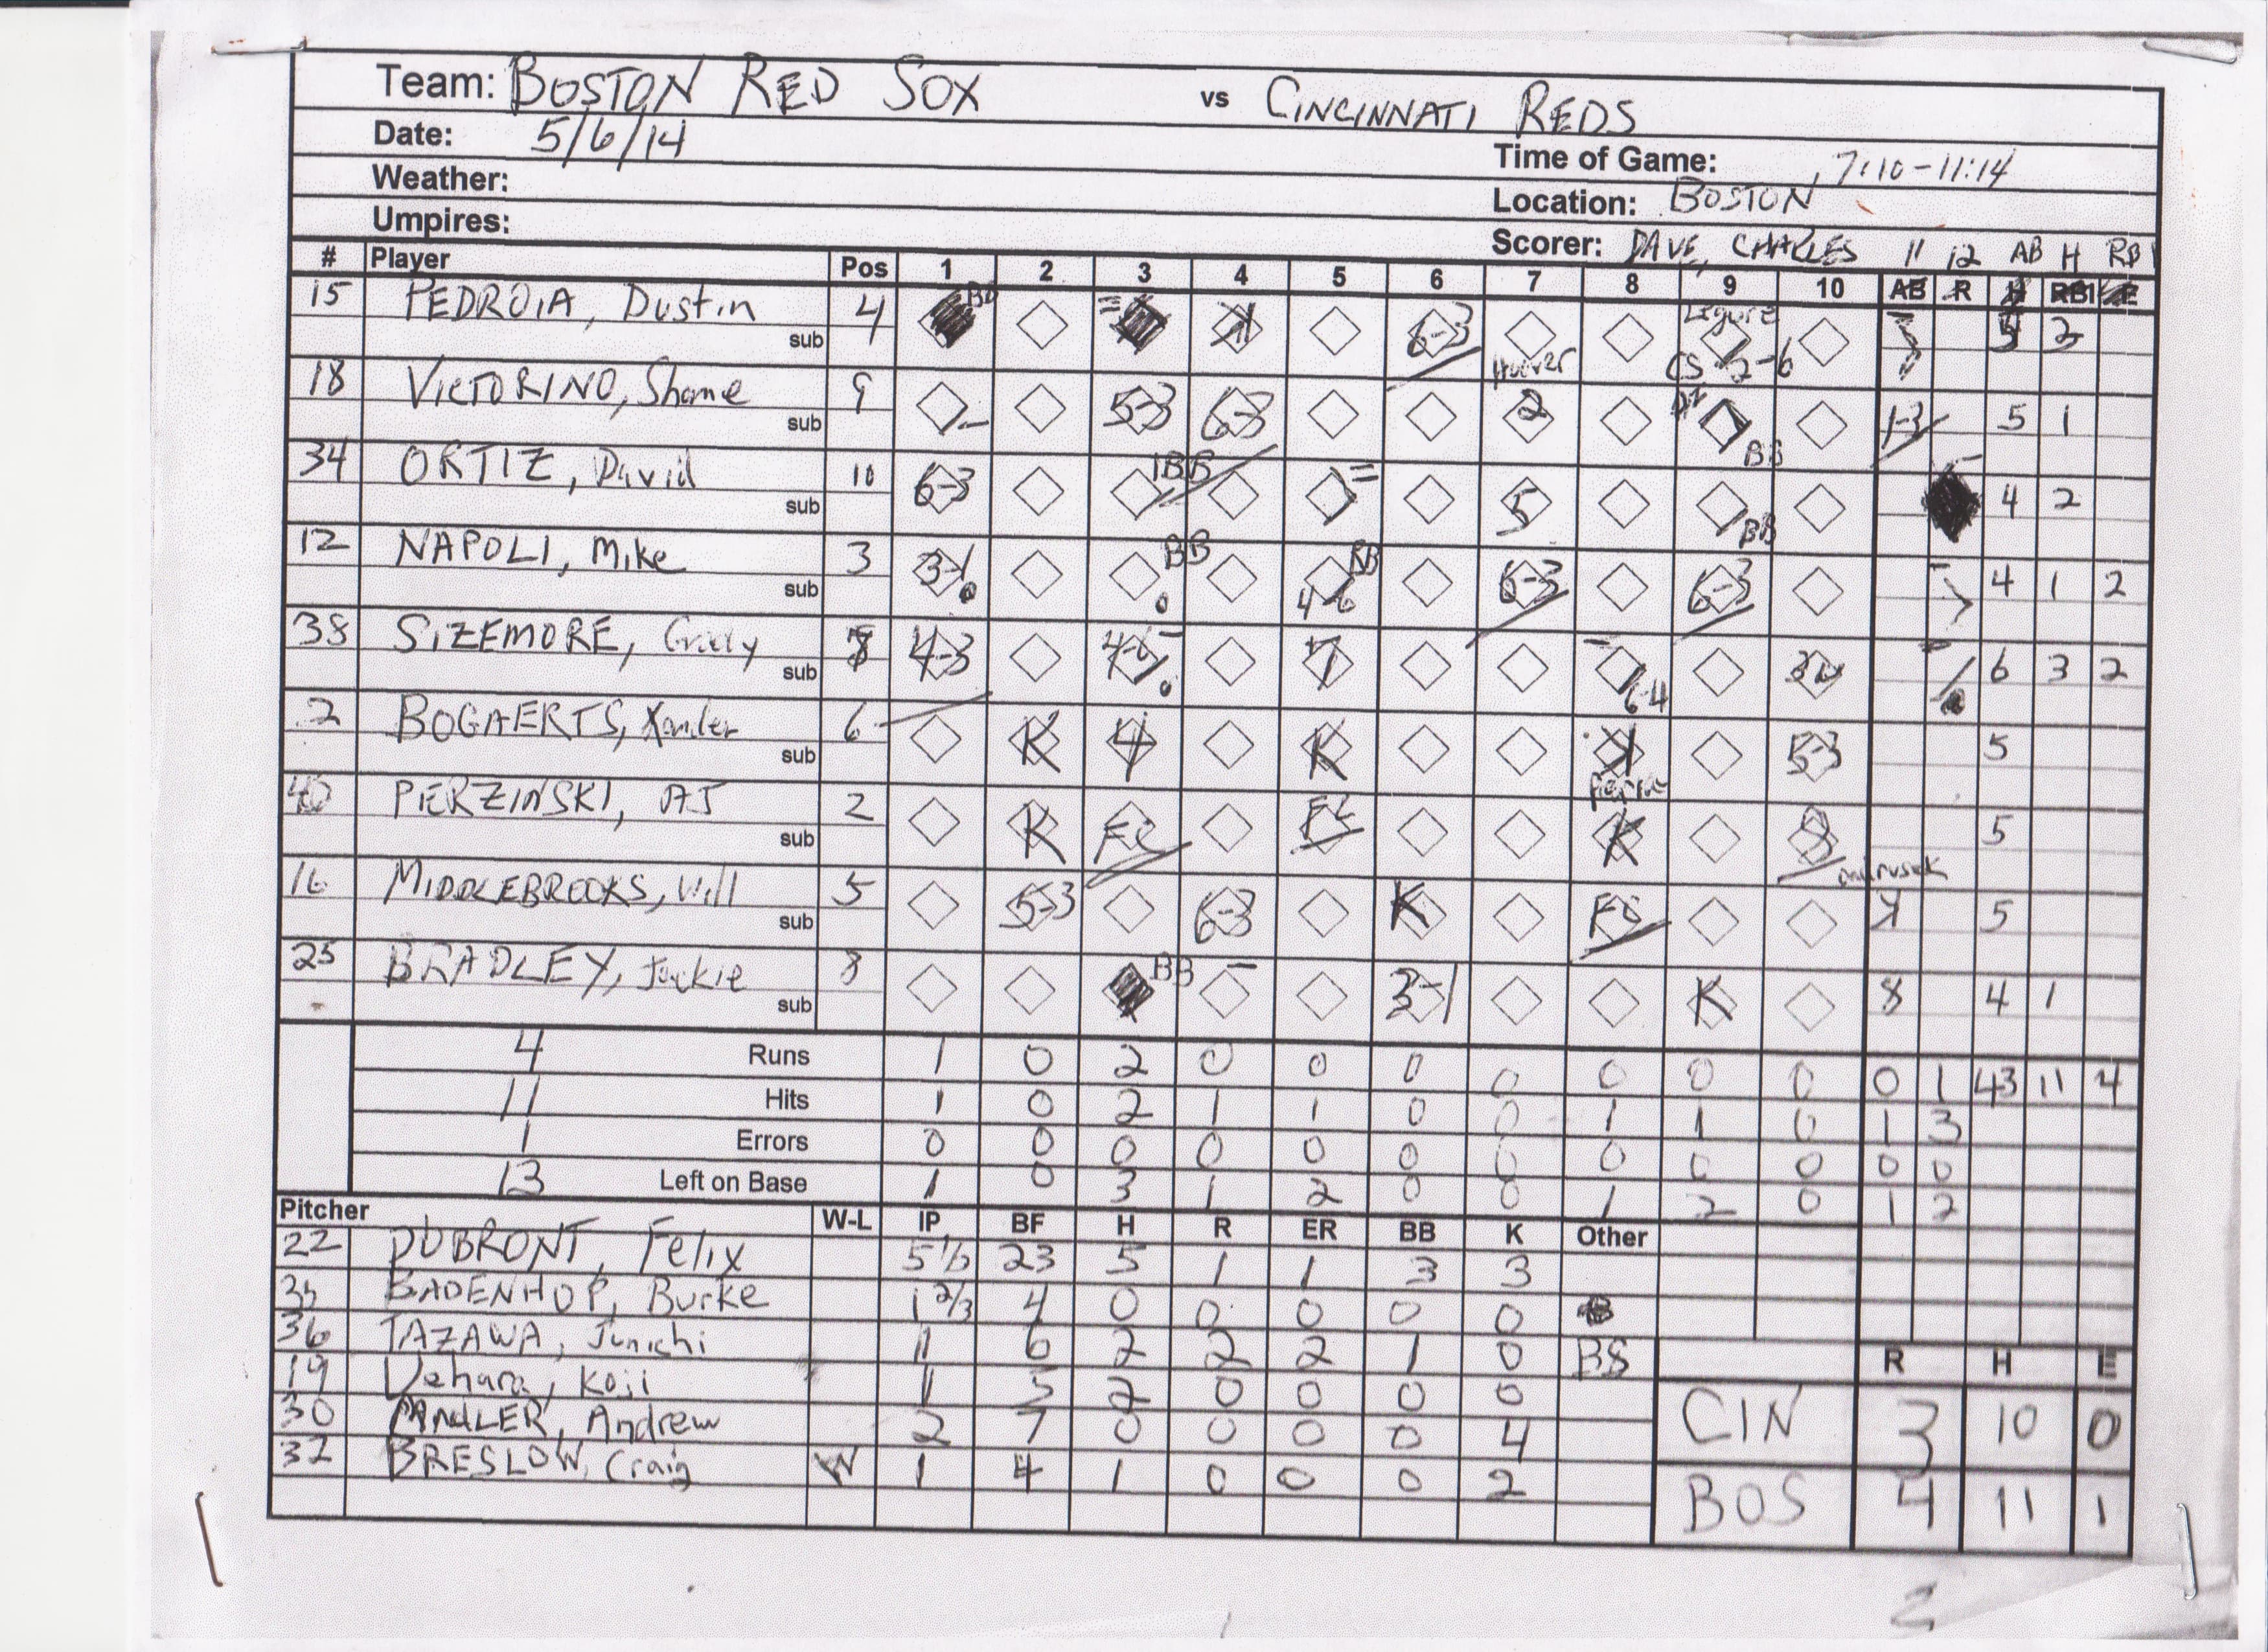 Team: BOSTON RED SOX vs CINCINNATI REDS
Date: 5/6/14
Time of Game: 7:10-11:14
Weather:
Location: BOSTON
Umpires:
Scorer: DAVE, CHARLES 11 12 AB H RBI
# Player Pos 1 2 3 4 5 6 7 8 9 10 AB R H RBI E
15 PEDROIA, Dustin 4 BB 6-3 Legure 5 2
sub Hoover CS 2-6
18 VICTORINO, Shane 9 5-3 6-3 2 BB 1-3 5 1
sub
34 ORTIZ, David 10 6-3 IBB 5 BB 4 2
sub
12 NAPOLI, Mike 3 3-1 BB BB 4-6 6-3 6-3 4 1 2
sub
38 SIZEMORE, Grady 4-3 7 6-4 3U 6 3 2
sub
2 BOGAERTS, Xander 6 K 4 K K 5-3 5
sub
40 PIERZINSKI, AJ 2 K FC FC K 8 5
sub
16 MIDDLEBROOKS, Will 5 5-3 6-3 K FC K 5
sub
25 BRADLEY, Jackie 8 BB 3-1 K 8 4 1
sub
4 Runs 1 0 2 0 0 0 0 0 0 0 0 1 43 11 4
11 Hits 1 0 2 1 1 0 0 1 1 0 1 3
1 Errors 0 0 0 0 0 0 0 0 0 0 0 0
13 Left on Base 1 0 3 1 2 0 0 1 2 0 1 2
Pitcher W-L IP BF H R ER BB K Other
22 DUBRONT, Felix 5 1/3 23 5 1 1 3 3
35 BADENHOP, Burke 1 2/3 4 0 0 0 0 0
36 TAZAWA, Junichi 1 6 2 2 2 1 0 BS
19 Uehara, Koji 1 5 2 0 0 0 0
30 Andrew 2 7 0 0 0 0 4
32 BRESLOW, Craig W 1 4 1 0 0 0 2
R H E
CIN 3 10 0
BOS 4 11 1